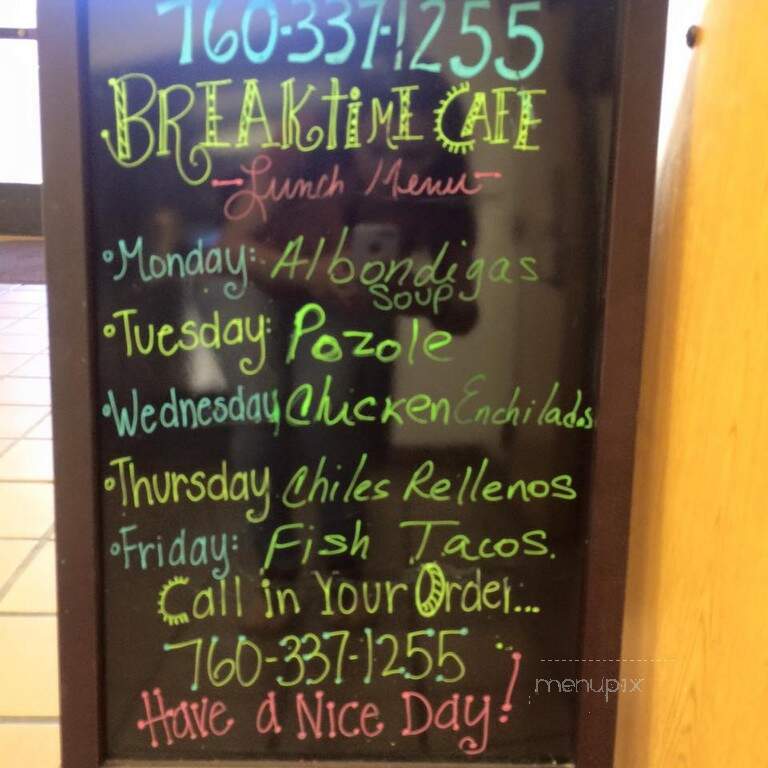 760-337-1255
BREAKtiME CAFE
-Lunch Menu-
•Monday: Albondigas
Soup
•Tuesday: Pozole
•Wednesday Chicken Enchiladas
•Thursday Chiles Rellenos
•Friday: Fish Tacos.
Call in Your Order...
760-337-1255
Have a Nice Day!
menupix